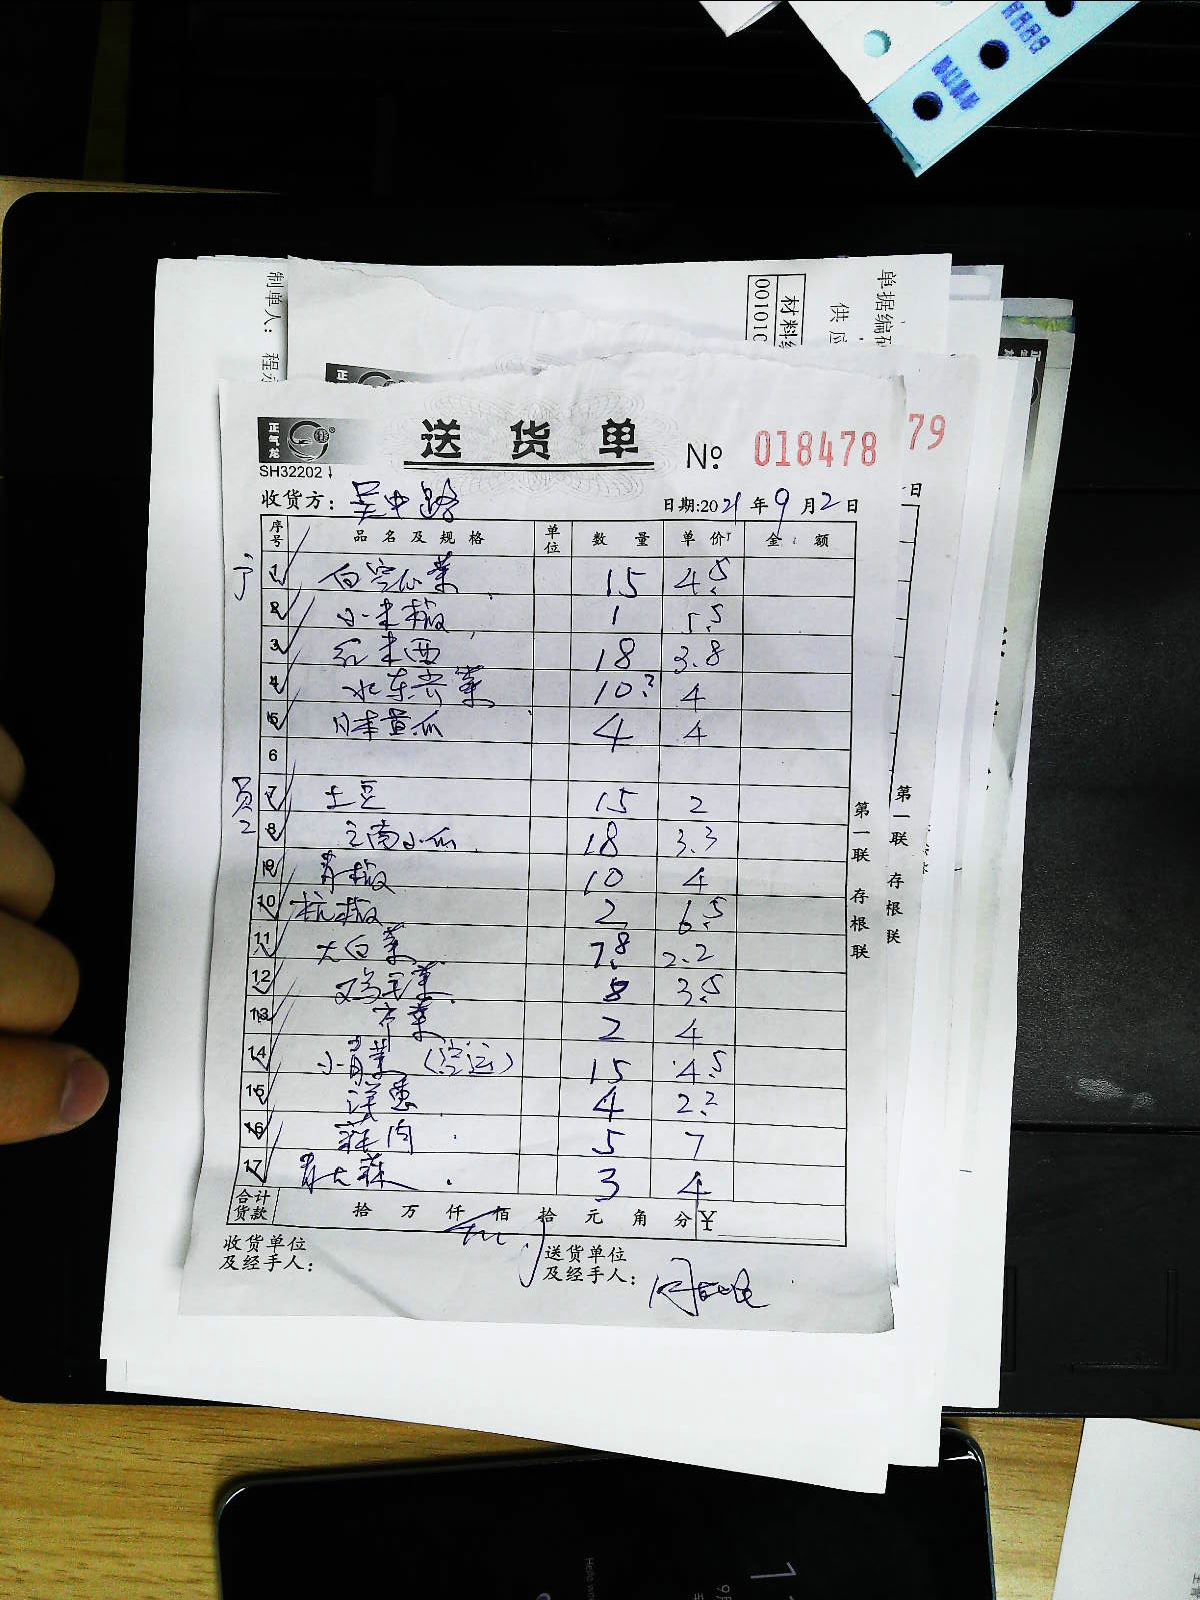 制单人：
单据编
供应
材料
001010
正气龙
SH32202
送货单
No: 018478
79
收货方：吴中路
日期:2021年9月2日
日
序号 品名及规格 单位 数量 单价 金额
1 15 4.5
2 小米椒 1 5.5
3 红米西 18 3.8
4 水东芥菜 10.2 4
5 日本黄瓜 4 4
6
员工
7 土豆 15 2
8 小瓜 18 3.3
9 青椒 10 4
10 杭椒 2 6.5
11 大白菜 7.8 2.2
12 鸡毛菜 8 3.5
13 2 4
14 小青菜（空运） 15 4.5
15 洋葱 4 2.2
16 5 7
17 青大蒜 3 4
合计货款 拾 万 仟 佰 拾 元 角 分 ¥
收货单位及经手人：
送货单位及经手人：
第一联 存根联
第一联 存根联